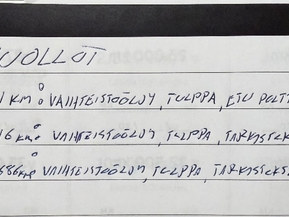 UOLLOT
1 KM: VAIHTEISTOÖLJY, TULPPA, ETU POLT
16 KM: VAIHTEISTOÖLJY, TULPPA, TARKISTUKS
686 KM: VAIHTEISTOÖLJY, TULPPA, TARKISTUKS